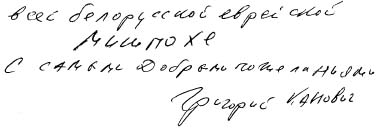 всей белорусской еврейской
мишпохе
с самыми добрыми пожеланиями
Григорий Канович